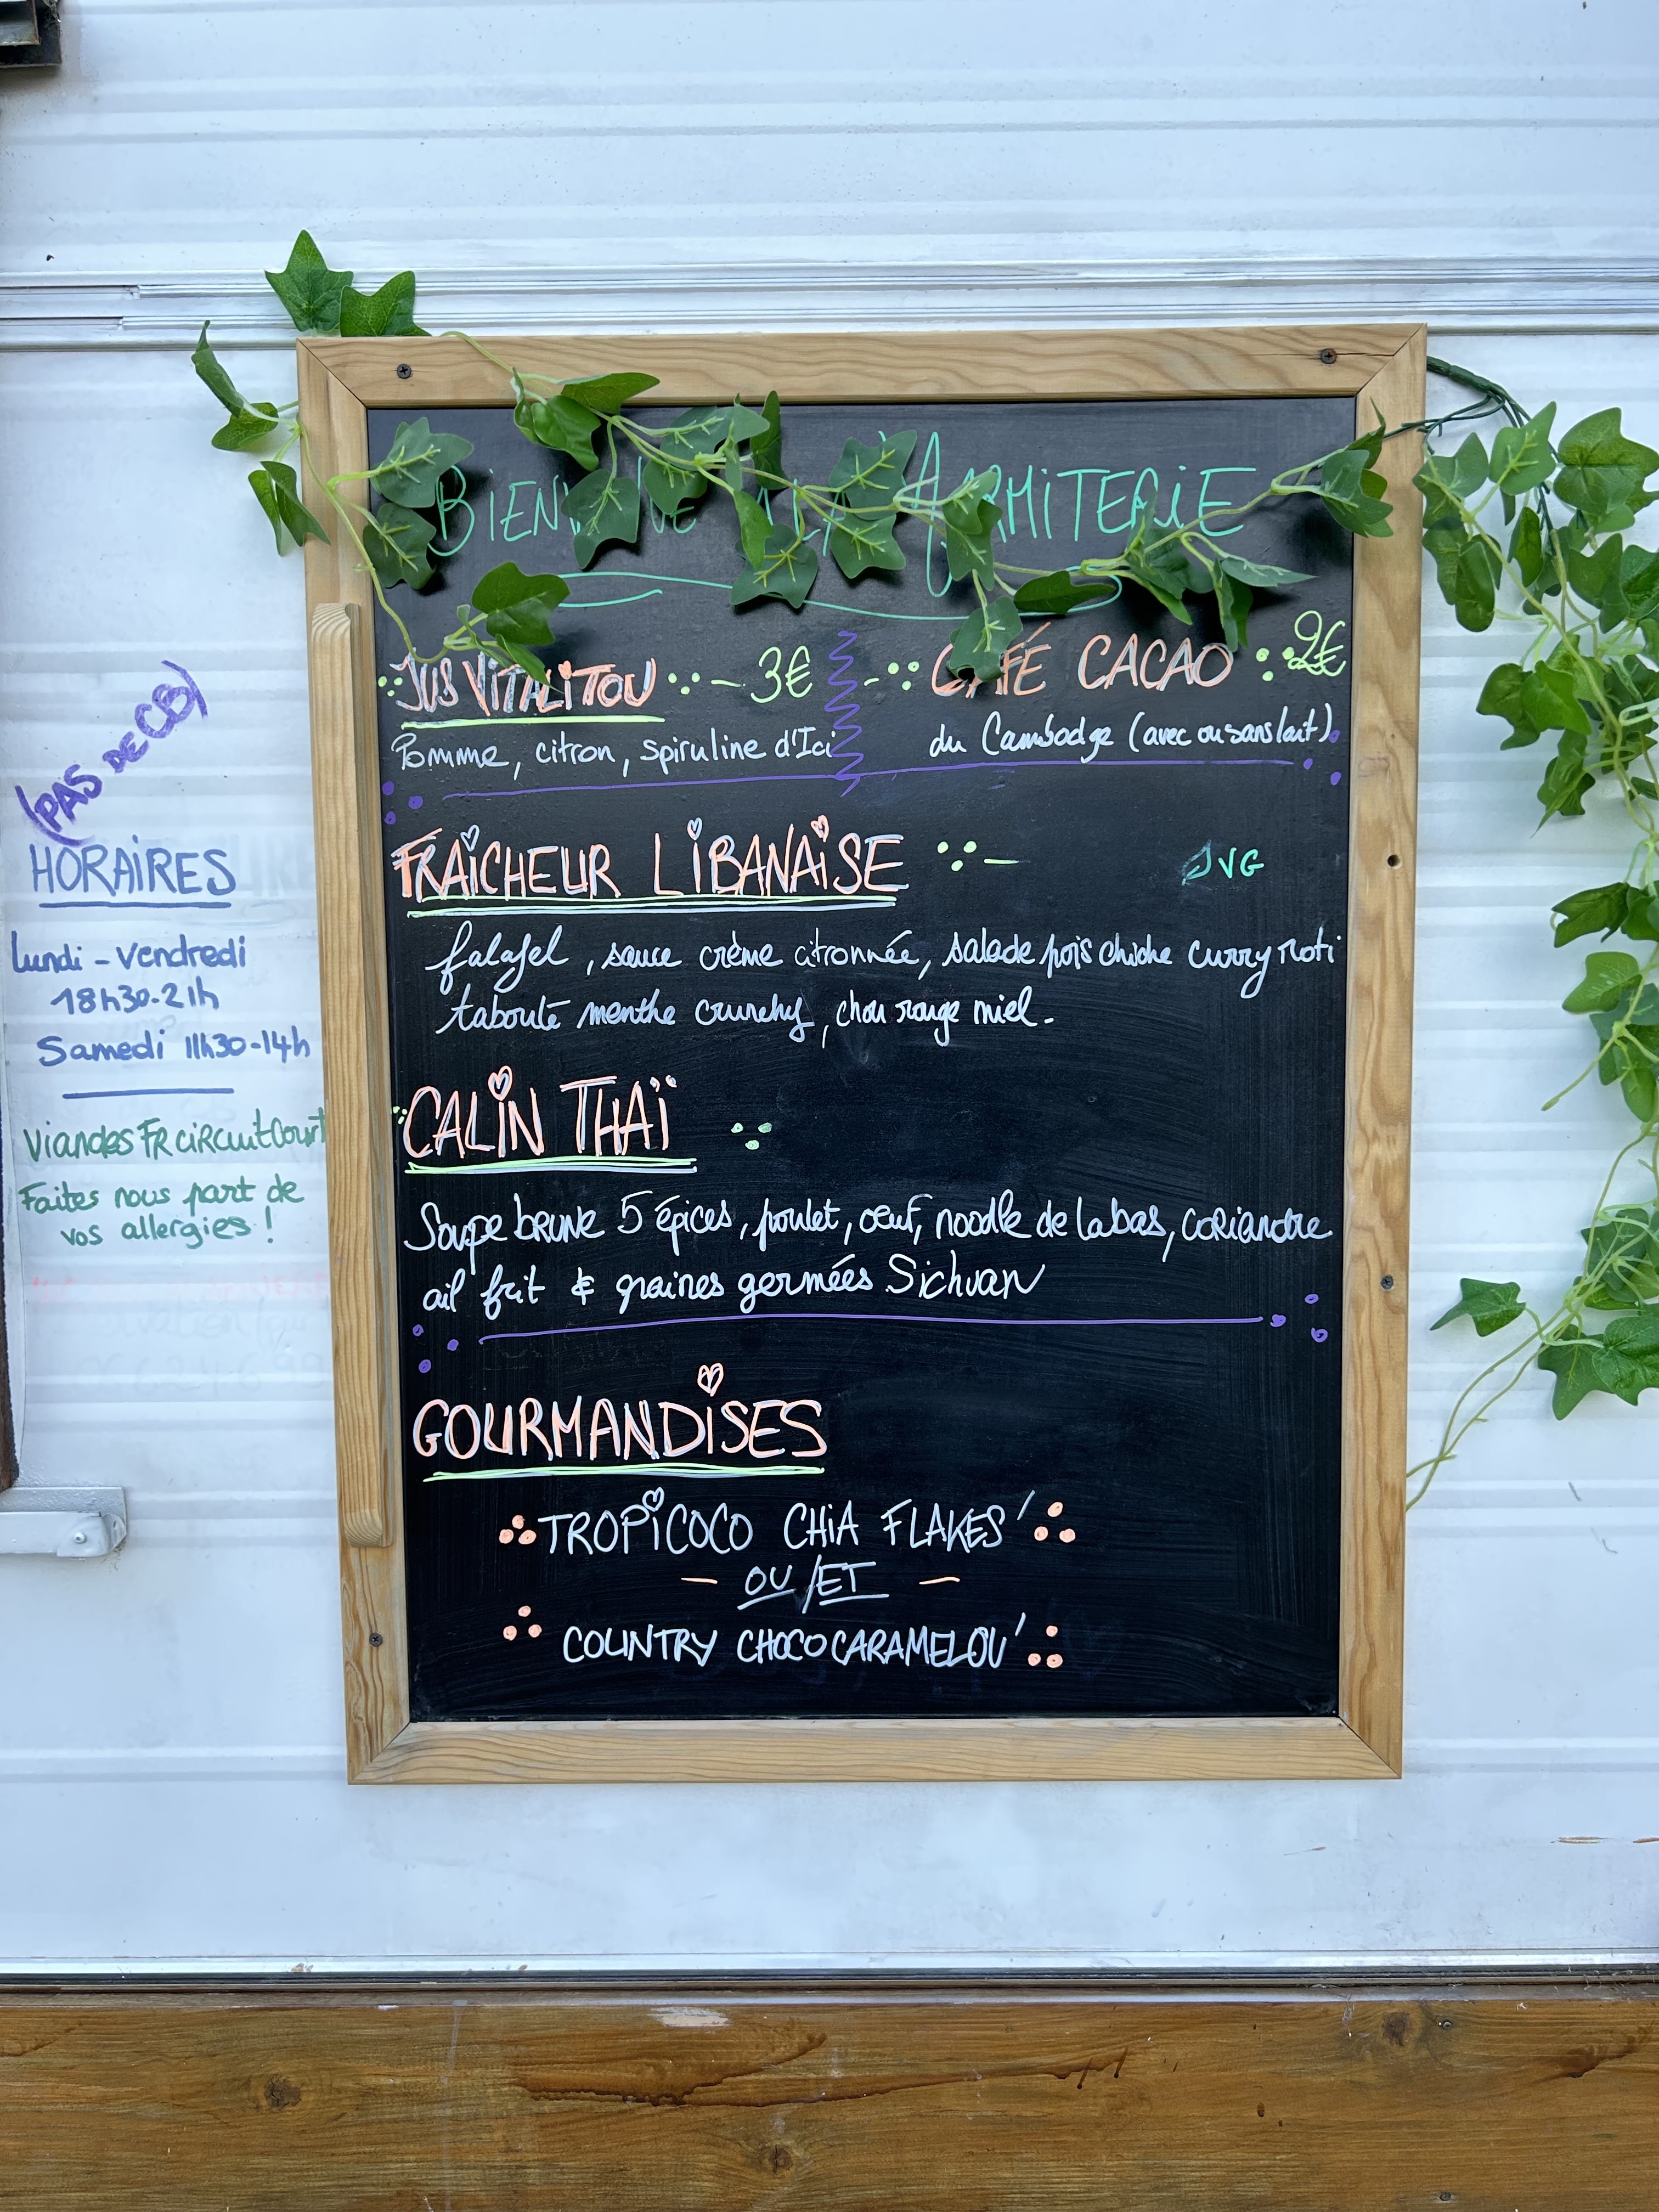 BIENVENUE À LA MARMITERIE
JUS VITALITOU 3€
Pomme, citron, spiruline d'Ici
CAFÉ CACAO 2€
du Cambodge (avec ou sans lait)
FRAÎCHEUR LIBANAISE VG
falafel, sauce crème citronnée, salade pois chiche curry roti
taboulé menthe crunchy, chou rouge miel.
CALIN THAÏ
Soupe brune 5 épices, poulet, œuf, noodle de labas, coriandre
ail frit & graines germées Sichuan
GOURMANDISES
TROPICOCO CHIA FLAKES'
— OU/ET —
COUNTRY CHOCOCARAMELOU'
(PAS DE CB)
HORAIRES
Lundi - Vendredi
18h30-21h
Samedi 11h30-14h
Viandes FR CiRCuit Court
Faites nous part de
vos allergies !